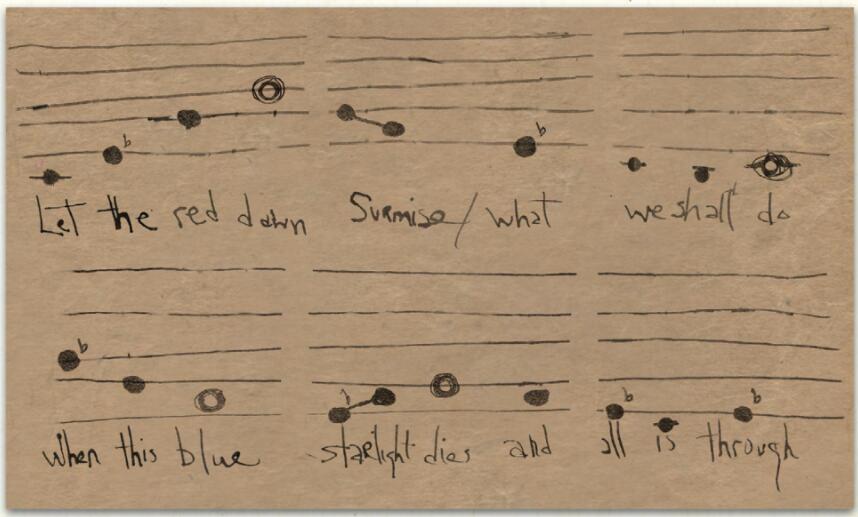 Let the red dawn Surmise/ what we shall do
when this blue starlight dies and all is through